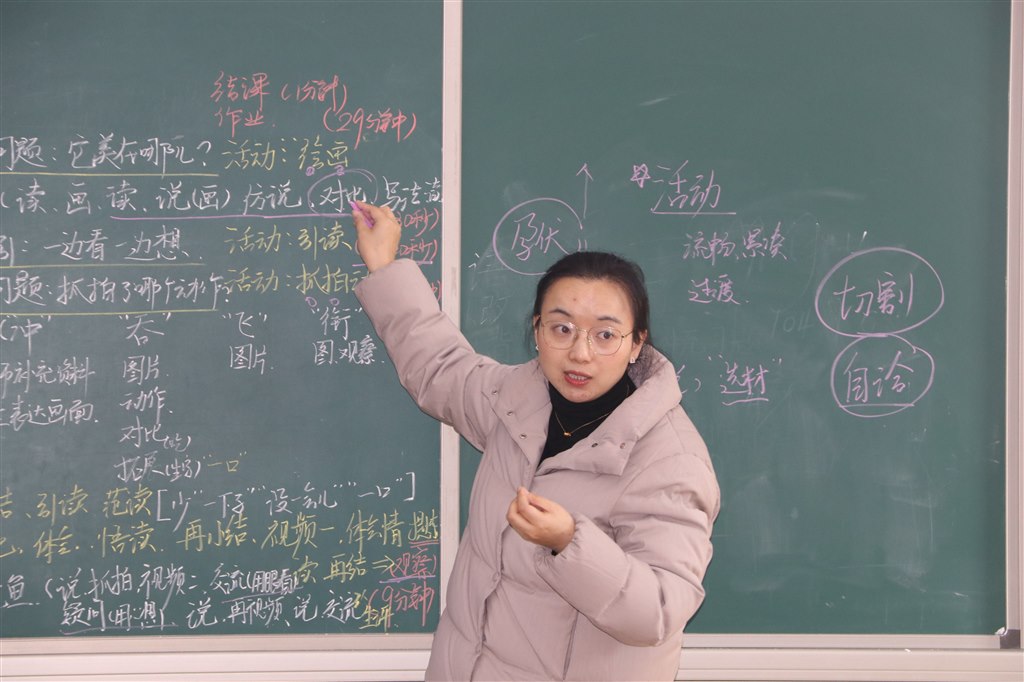 结课（1分钟）
作业（29分钟）
问题：它美在哪儿？ 活动：绘画
（读、画、读、说（画）仿说、对比、写
引：一边看一边想 活动：引读
问题：抓拍了哪个动作 活动：抓拍
“冲” “吞” “飞” “衔”
图片 图片 图 观察
师补充资料
表达画面 动作
对比（吃）
拓展（生字）“一口”
结 引读 范读[“少”“一下子”“没一会儿”“一口”]
体会、悟读、再小结、视频一、体会情
鱼（说、抓拍、视频二、交流（用眼看） 读 再结⇒观察）
疑问（用“想”）说、再视频、说、交流 （9分钟
活动
孕伏
流畅、累读
过度
切割
“选材”
自洽